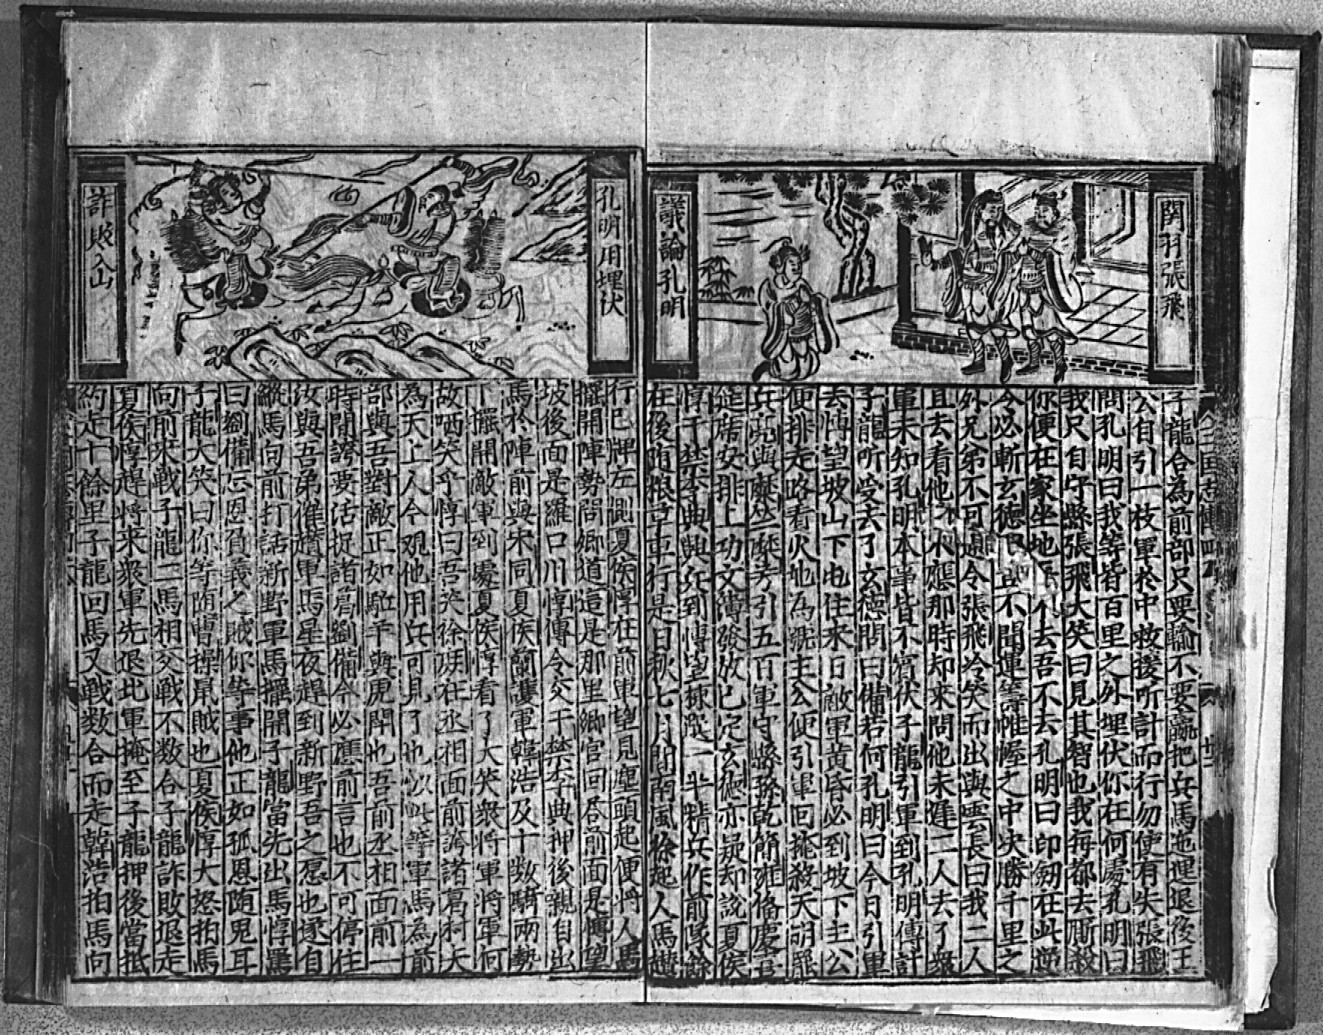 関羽張飛
議論孔明
子龍合為前部只要輸不要贏把兵馬迤逞退後主
公自引一枝軍於中救援听計而行勿使有失張飛
問孔明曰我等皆百里之外埋伏你在何處孔明曰
我只自守縣張飛大笑曰見其智也我每都去厮殺
你便在家坐地 去吾不去孔明曰印劒在此違
令必斬玄德曰 不聞運籌帷幄之中决勝千里之
外兄弟不可違令張飛冷笑而出與雲長曰我二人
且去看他 不應那時却来問他未遲二人去了衆
軍未知孔明本事皆不賔伏子龍引軍到孔明傳計
子龍听受去了玄德問曰備若何孔明曰今日引軍
去博望坡山下屯住来日敵軍黄昏必到坡下主公
便排走路看火起為號主公便引軍回掩殺天明罷
兵亮與糜竺糜芳引五百軍守縣孫乾簡雍俻慶喜
筵席安排上功文簿發放已定玄德亦疑却說夏侯
惇于禁李典興兵到博望坡 一半精兵作前隊餘
在後随粮草車行是日秋七月間南風徐起人馬趲
孔明用埋伏
詐敗入山
行巳牌左側夏侯惇在前車望見塵頭起便將人馬
擺開陣勢問鄉道這是那里鄉官回告前面是博望
坡後面是羅口川惇傳令交于禁李典押後親自出
馬於陣前與宋同夏侯蘭護軍韓浩及十数騎兩勢
下擺開敵軍到處夏侯惇看了大笑衆將軍將軍何
故哂笑乎惇曰吾笑徐庶在丞相面前誇諸葛村夫
為天上人今观他用兵可見了也以此等軍馬為前
部與吾對敵正如駈羊與虎閗也吾前丞相面前一
時間誇要活捉諸葛劉備今必應前言也不可停住
汝與吾弟催趲軍馬星夜趕到新野吾之愿也遂自
縱馬向前打話新野軍馬擺開子龍當先出馬惇罵
曰劉備忘恩負義之賊你等事他正如孤恩随鬼耳
子龍大笑曰你等随曹操鼠賊也夏侯惇大怒拍馬
向前来戰子龍二馬相交戰不数合子龍詐敗退走
夏侯惇趕將来衆軍先退北軍掩至子龍押後當抵
約走十餘里子龍回馬又戰数合而走韓浩拍馬向